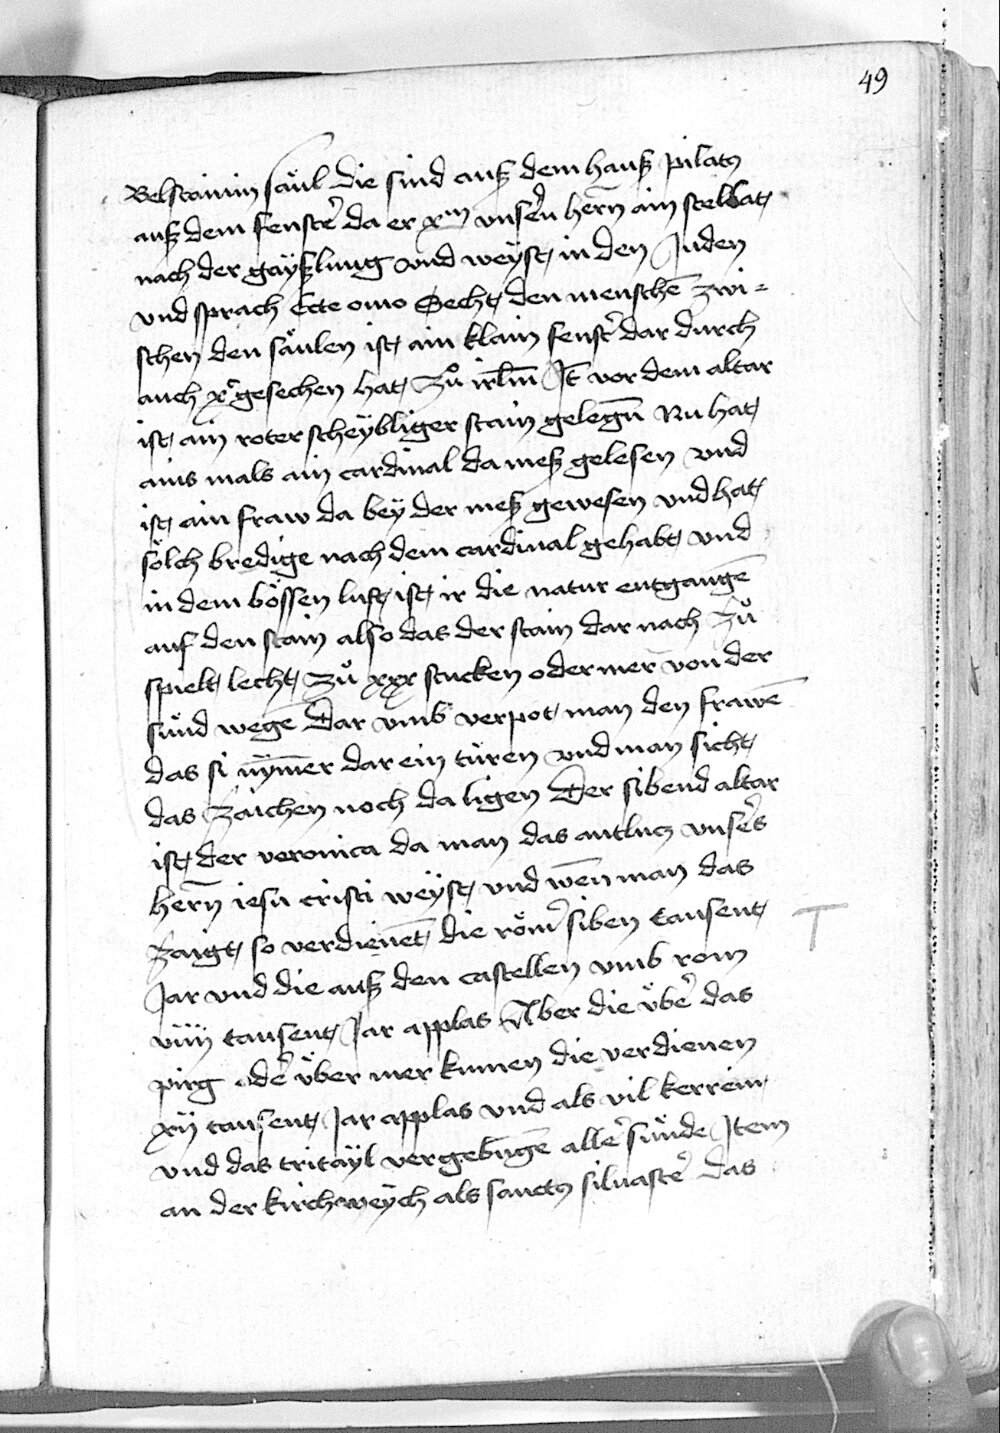 49
Belstainin säul die sind auß dem hauß pilatꝯ
auß dem fenstẻ da er xm̄ vnsern hern̄ ain stellat
nach der gäyßlung vnd weyst in den Juden
vnd sprach Ecce omo Secht den menschē zwi=
schen den säulen ist ain klain fenstẻ dar durch
auch x gesechen hat zů irl̄m Jt̄ vor dem altar
ist ain roter scheybliger stain gelegn̄ Nu hat
ains mals ain cardinal da meß gelesen vnd
ist ain fraw da bey der meß gewesen vnd hat
sölch bredige nach dem cardinal gehabt vnd
in dem bössen luft ist ir die natur entgangē
auf den stain also das der stain dar nach zů
spielt lecht zů xxx stucken oder mer von der
sünd wegē Dar vmb verpot man den frawē
das si nym̄er dar ein türen vnd man sicht
das zaichen noch da ligen Der sibend altar
ist der veronica da man das antlucz vnsers
hern̄ iesu cristi weyst vnd wen̄ man das
zaigt so verdienēt die röm̉ siben tausent
Jar vnd die auß den castellen vmb rom
viiij tausent Jar applas Aber die übẻ das
pirg odẻ über mer kumen die verdienen
xij tausent Jar applas vnd als vil kerrein
vnd das tritäyl vergebūgē allẻ sünde Item
an der kirchweych als sanctꝯ siluastẻ das
T